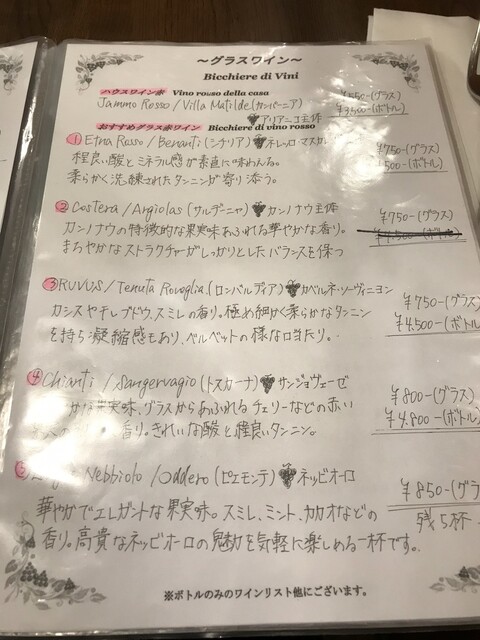 ～グラスワイン～
Bicchiere di Vini
ハウスワイン赤 Vino rosso della casa
Jammo Rosso / Villa Matilde (カンパーニア) ¥550-(グラス)
アリアニコ主体 ¥3,500-(ボトル)
おすすめグラス赤ワイン Bicchiere di vino rosso
① Etna Rosso / Benanti (シチリア) ネレッロ マスカ ¥750-(グラス)
程良い酸とミネラル感が素直に味わえる。 500-(ボトル)
柔らかく洗練されたタンニンが寄り添う。
② Costera / Argiolas (サルデーニャ) カンノナウ主体 ¥750-(グラス)
カンノナウの特徴的な果実味あふれる華やかな香り。 ¥4,500-(ボトル)
まろやかなストラクチャーがしっかりとしたバランスを保つ
③ RUVUS / Tenuta Rovoglia (ロンバルディア) カベルネ・ソーヴィニヨン ¥750-(グラス)
カシスやチレブドウ、スミレの香り。極め細かく柔らかなタンニン ¥4,500-(ボトル)
を持ち凝縮感もあり、ベルベットの様な口当たり。
④ Chianti / Sangervagio (トスカーナ) サンジョヴェーゼ ¥800-(グラス)
かな果実味、グラスからあふれるチェリーなどの赤い ¥4,800-(ボトル)
香り。きれいな酸と程良いタンニン。
Nebbiolo / Oddero (ピエモンテ) ネッビオーロ ¥850-(グラ
華やかでエレガントな果実味。スミレ、ミント、カカオなどの 残5杯
香り。高貴なネッビオーロの魅力を気軽に楽しめる一杯です。
※ボトルのみのワインリスト他にございます。